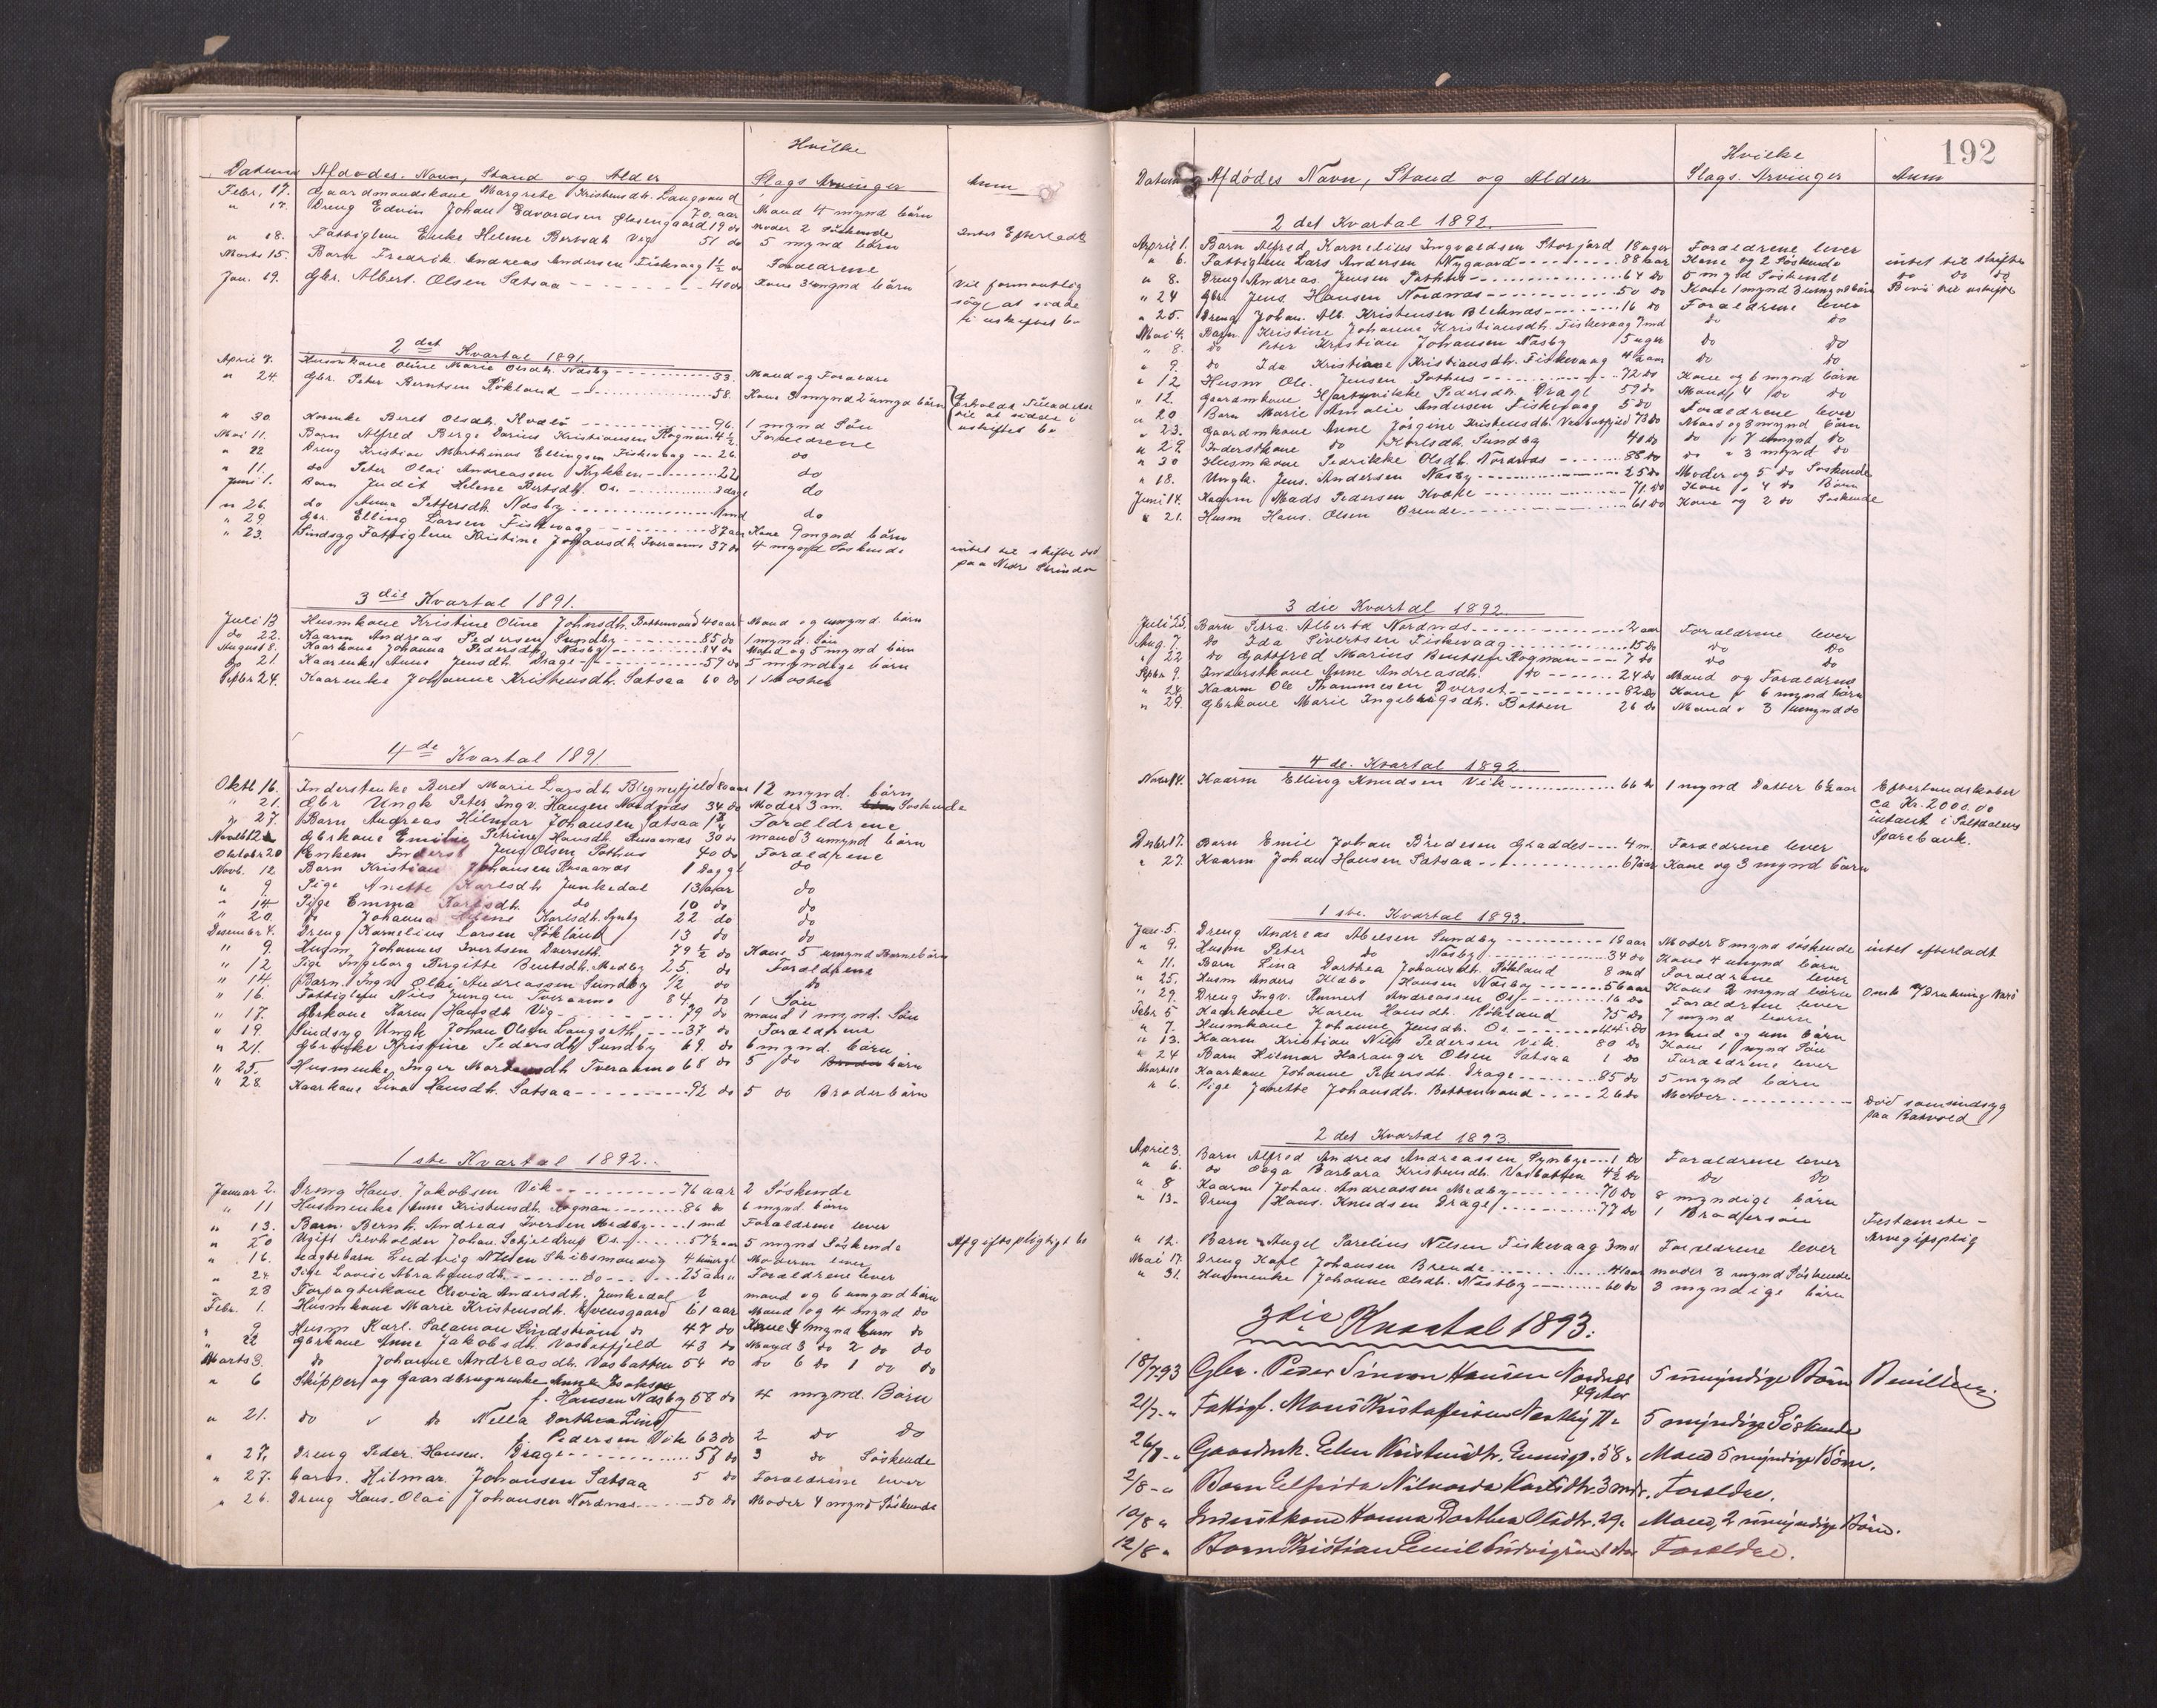 Hvilke
Datum Afdødes Navn, Stand og Alder Slags Arvinger Anm
Febr. 17. Gaardmandskone Margrete Kristensdh. Langsand 70 aar Mand 4 mynd børn
" 17. Dreng Edvin Johan Edvardsen 19 do Moder 2 Søskende
" 18. Fattiglem Enke Helene Berntsdh Vig 51 do 5 mynd børn Intet Efterladt
Marts 15. Barn Fredrik Andreas Andersen Fiskvaag 1½ do Forældrene
Jan. 19. Gbr. Albert Olsen Satsaa 40 do Kone 3 umynd børn Vil formentlig
søge at sidde
i uskiftet bo
2 det Kvartal 1891.
April 7. Husmkone Oline Marie Olsdh. Næsby 33. Mand og Forældre
" 24. Gbr. Peter Berntsen Røkland 58. Kone 3 mynd 2 umynd børn Erholdt Tilladelse
til at sidde i
uskiftet bo
" 30. Beret Olsdh. 96. 1 mynd Søn
Mai 11. Barn Alfred Berge Darius Kristiansen Rognan 4½. Forældrene
" 22 Dreng Kristian Marthinus Ellingsen Fiskvaag 26. do
" 11. do Peter Olai Andreassen 22 do
Juni 1. Barn Judit Helene Berntsdh. Os. 3 dage do
" 26. do Anna Pettersdh. Næsby 1 md do
" 29. Gbr. Elling Larsen Fiskvaag 87 aar Kone 9 mynd børn
" 23. Sindsyg Fattiglem Kristine Johansdh Tveraamo 37 do 4 mynd Søskende intet til skifte død
paa Nedre
3 die Kvartal 1891.
Juli 13 Husmkone Kristine Oline Johnsdh. Bottenvand 40 aar Mand og umynd. børn
do 22. Kaarm Andreas Pedersen Sundby 85 do 1 mynd. Søn
August 8. Kaarkone Johanna Pedersdh Næsby 84 do Mand og 5 mynd børn
do 21. Kaarenke Anne Jensdh. Drage 59 do 5 myndige børn
Septbr 24. Kaarenke Johanne Kristensdh. Satsaa 60 do 1 Søster
4 de Kvartal 1891
Oktb. 16. Inderstenke Beret Marie Larsdh. 80 aar 12 mynd. børn
" 21. Gbr Ungk Peter Ingv. Hansen Nordnæs 34 do Moder 3 m. Søskende
" 27. Barn Andreas Hilmar Johansen Satsaa Forældrene
Novbr 12 Gbrkone Petrine Hansdh. 30 do mand 3 umynd børn
Oktobr 20 Enkem Inderst Jens Olsen Pothus 40 do Forældrene
Novb. 12 Barn Kristian Johansen 1 Dag gl do
" 9. Pige Anette Karlsdh. Junkedal 13 aar do
" 14. Pige Emma Karlsdh. do 10 do do
" 20. do Johanna Helene Karlsdh. Synby 22 do do
Desember 4. Dreng Kornelius Larsen Røkland 13 do do
" 9. Husm. Johannes Ivertsen Dverseth. 79½ do Kone 5 umynd Barnebørn
" 12 Pige Ingeborg Birgitte Bentsdh. Medby 25. do Forældrene
" 14. Barn. Ing. Olai Andreassen Sundby ½ do do
" 16. Fattiglem Nils Jungen Tveraamo 84 do 1 Søn
" 17. Gbrkone Karen Hansdh Vig 79 do mand 1 mynd. Søn
" 19. Sindsyg Ungk Johan Olsen Langseth 37 do Forældrene
" 21. Gbrenke Kristine Pedersdh Sundby 69. do 6 mynd. børn
" 25. Husmenke Inger Mortensdh Tveraamo 68 do 5 do børn
" 28. Kaarkone Lina Hansdh. Satsaa 92 do 5 do Broderbørn
1 ste Kvartal 1892.
Januar 2. Dreng Hans. Jakobsen Vik 76 aar 2 Søskende
" 11 Husmenke Anne Kristensdh. Rognan 86 do 6 mynd. børn
" 13. Barn. Bernh. Andreas Iversen Medby 1 md Forældrene lever
" 20 Ugift Selvholder Johan. Schjeldrup Os 57½ aar 5 mynd Søskende Afgiftspligtigt bo
" 16. uægte barn Ludvig Nilsen 4 uger gl Moderen lever
" 24. Pige Lovise Abrahamsdh. do 25 aar Forældrene lever
" 28 Forpagterkone Andersdh. Junkedal mand og 6 umynd børn
Febr. 1. Husmkone Marie Kristensdh. Evensgaard 61 aar Mand og 4 mynd do
" 9 Husm Karl. Salamon Lindstrøm do 47 do Kone 4 mynd do
" 22 Gbrkone Anne Jakobsdh. Vasbotfjeld 43 do Mand 3 do 2 do do
Marts 3. do Johanne Andreasdh. Vasbotten 54 do do 6 do 1 do do
" 6 Skipper og Gaardbrugerenke Anne Isaksen
f. Hansen Næsby 58 do 4 mynd. Børn
" 21. do v do Nella Dorthea Lind
f. Pedersen Vik 63 do 2 do do
" 27. Dreng Peder. Hansen. Drage 57 do 3 do Søskende
" 27. barn. Hilmar. Johansen Satsaa 5 do Forældrene lever
" 26. Dreng Hans. Olai Johansen Nordnæs 50 do Moder 4 mynd Søskende
192
Hvilke
Datum Afdødes Navn, Stand og Alder Slags. Arvinger Anm
2 det Kvartal 1892.
April 1. Barn Alfred Kornelius Ingvaldsen Storjord 18 uger Forældrene lever
" 6. Fattiglem Lars Andersen Nygaard 88 aar Kone og 2 Søskende intet til skifte
" 8. Dreng Andreas Jensen Pothus 64 do 5 mynd Søskende do do do
" 24 Gbr. Jens Hansen Nordnæs 50 do Kone 1 mynd 3 umynd børn Bevil til uskifte
" 25. Dreng Johan. Alb. Kristensen 16 do Forældrene lever
Mai 4. Barn. Kristine Johanna Kristiansdh. Fiskevaag 7 md do do
" 8. do Peter Kristian Johansen Næsby 5 uger do do
" 9. do Ida Kristiane Kristiansdh. Fiskevaag 4 aar do do
" 12 Husm Ole. Jensen Pothus 72 do Kone og 6 mynd børn
" 12. Gaardmkone Pedersdh. Drage 59 do Mand, 4 do do
" 20 Barn Marie Amalie Andersen Fiskevaag 5 do Forældrene lever
" 23. Gaardmkone Anne Jørgine Kristensdh. Vasbotfjeld 73 do Mand og 3 mynd børn
" 29. Inderstkone do Karlsdh. Sundby 40 do do " 7 umynd do
" 30 Husmkone Pedrikke Olsdh. Nordnæs 88 do do " 3 mynd do
" 18. Ungk. Jens. Andersen Næsby 25 do Moder og 5 do Søskende
Juni 14. Kaarm Mads Pedersen 71 do Kone " 4 do Børn
" 21. Husm Hans. Olsen Brende 61 do Kone og 2 do Søskende
3 die Kvartal 1892.
Juli 25. Barn Petra. Alberta Nordnæs 2 aar Forældrene lever
Aug. 7. do Ida Sivertsen Fiskevaag 15 do do do
" 22 do Gottfred Marius Bentsen Rognan 7 do do do
Septbr 9. Inderstkone Anne Andreasdh. do 24 do Mand og Forældrene
" 24. Kaarm Ole Thommesen Dverset 82 do Kone " 6 mynd børn
" 29. Gbrkone Marie Ingebrigtsdh. Botten 26 do Mand " 3 umynd do
4 de. Kvartal 1892.
Novbr 14. Kaarm Elling Knudsen Vik 66 do 1 mynd Datter Efterlandskaber
ca Kr. 2000.00
intaut i Saltdalens
Sparebank.
Desbr 17. Barn Emil Johan Bredesen Graddes 4 m. Forældrene lever
" 27. Kaarm Johan Hansen Satsaa 67 aar Kone og 3 mynd børn
1 ste. Kvartal 1893.
Jan. 5. Dreng Andreas Abelsen Sundby 18 aar Moder 8 mynd søskende intet efterladt
" 9. Husm Peter do Næsby 34 do Kone 4 umynd børn
" 11. Barn Lina Dorthea Johansdh. Røkland 8 md Forældrene lever
" 25. Husm Anders Hansen Næsby 56 aar Kone 2 mynd børn Omk v/ Drukning
" 29. Dreng Ingv. Andreassen Os 16 do Forældrene lever
Febr 5 Kaarkone Karen Hansdh. Røkland 75 do 7 mynd børn
" 7. Husmkone Johanne Jensdh. Os 44 do mand og um børn
" 13. Kaarm Kristian Nils Pedersen Vik. 80 do Kone 1 mynd Søn
" 24 Barn Hilmar Haranger Olsen Satsaa 1 do Forældrene lever
Marts 10 Kaarkone Johanne Pedersdh. Drage 85 do 5 mynd børn
" 6. Pige Janette Johansdh. Bottenvand 26 do Moder død som sindsyg
paa Rotvold
2 det Kvartal 1893
April 3. Barn Alfred Andreas Andreassen Synbye 1 do Forældrene lever
" 6. do Olga Barbara Kristensdh. Vasbotten 4½ do do do
" 8 Kaarm Johan. Andreassen Medby 70 do 8 myndige børn
" 13. Dreng Hans. Knudsen Drage 77 do 1 Brodersøn Testamente -
Arvegifspligtig
" 12. Barn Angel Parelius Nilsen Fiskevaag 3 md Forældrene lever
Mai 17. Dreng Karl Johansen Brende 41 aar moder 3 mynd Søskende
" 31. Husmenke Johanne Olsdh. Næstby 60 do 3 myndige børn
3die Kvartal 1893.
18/7 93 Gbr. Peder Simon Hansen Nordnæs 49 Aar 5 umyndige Børn Bevilling.
21/7 - " Fattigl. Mons Kristoffersen Næstby 71 " 5 myndige Søskende
26/7 - " Gaardmk. Elen Kristensdtr. 58 " Mand 5 myndige Børn.
2/8 - " Barn Elfrida Nilvarda Karlsdtr. 3 mdr. Forældre.
10/8 " Inderstkone Hanna Dorthea Olsdtr. 29. Mand, 2 umyndige Børn.
12/8 " Barn Kristian Emil Ludvigsen 1 Aar Forældre.